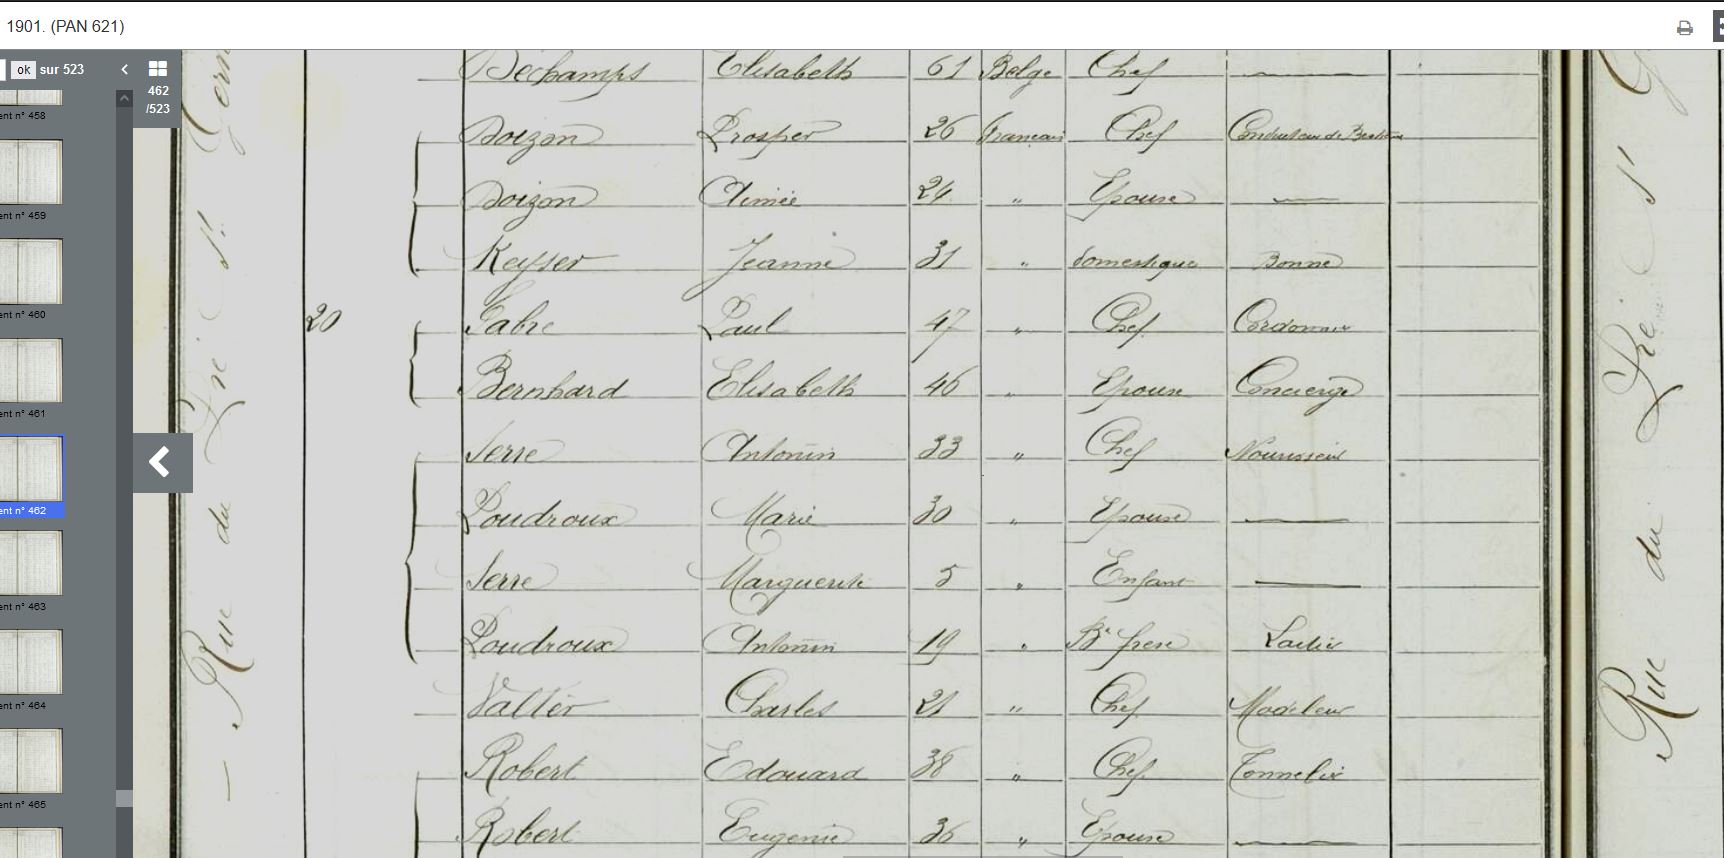 1901. (PAN 621)
ok sur 523
462
/523
ent n° 458
ent n° 459
ent n° 460
ent n° 461
ent n° 462
ent n° 463
ent n° 464
ent n° 465
Rue du Pré St Gerv
20
Déchamps Elisabeth 61 Belge Chef
Doizon Prosper 26 français Chef Conducteur de Bestiaux
Doizon Aimée 24 " Epouse
Keyser Jeanne 31 " domestique Bonne
Fabre Paul 47 " Chef Cordonnier
Bernhard Elisabeth 46 " Epouse Concierge
Serre Antonin 33 " Chef Nourisseur
Poudroux Marie 30 " Epouse
Serre Marguerite 5 " Enfant
Poudroux Antonin 19 " Bau frère Laitier
Valter Charles 21 " Chef Modeleur
Robert Edouard 38 " Chef Tonnelier
Robert Eugenie 36 " Epouse
Rue du Pré St G